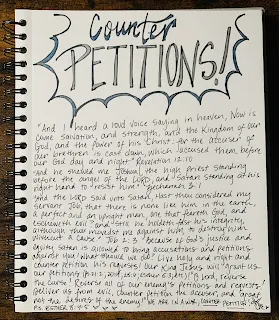 Counter
PETITIONS!
"And I heard a loud voice saying in heaven, Now is
come salvation, and strength, and the Kingdom of our
God, and the power of his Christ: for the accuser of
our brethren is cast down, which accused them before
our God day and night" Revelation 12:10
"And he shewed me Joshua, the high priest standing
before the angel of the LORD, and Satan standing at his
right hand to resist him" Zechariah 3:1
"And the LORD said unto Satan, Hast thou considered my
servant Job, that there is none like him in the earth,
a perfect and an upright man, one that feareth God, and
escheweth evil? and still he holdeth fast his integrity,
although thou movedst me against him, to destroy him
without a cause" Job 2:3 Because of God's justice and
equity satan is allowed to bring accusations and petitions
against us! What should we do? Live holy and right and
counter petition his requests! Our King Jesus will grant us
our petitions
"O Lord, reverse
the curse! Reverse all of our enemy's petitions and requests!
Deliver us from evil, counter petition the accuser, and
not the desires of the enemy!" WE ARE IN A WAR, COUNTER PETITION
P.S. ESTHER 8:4-5